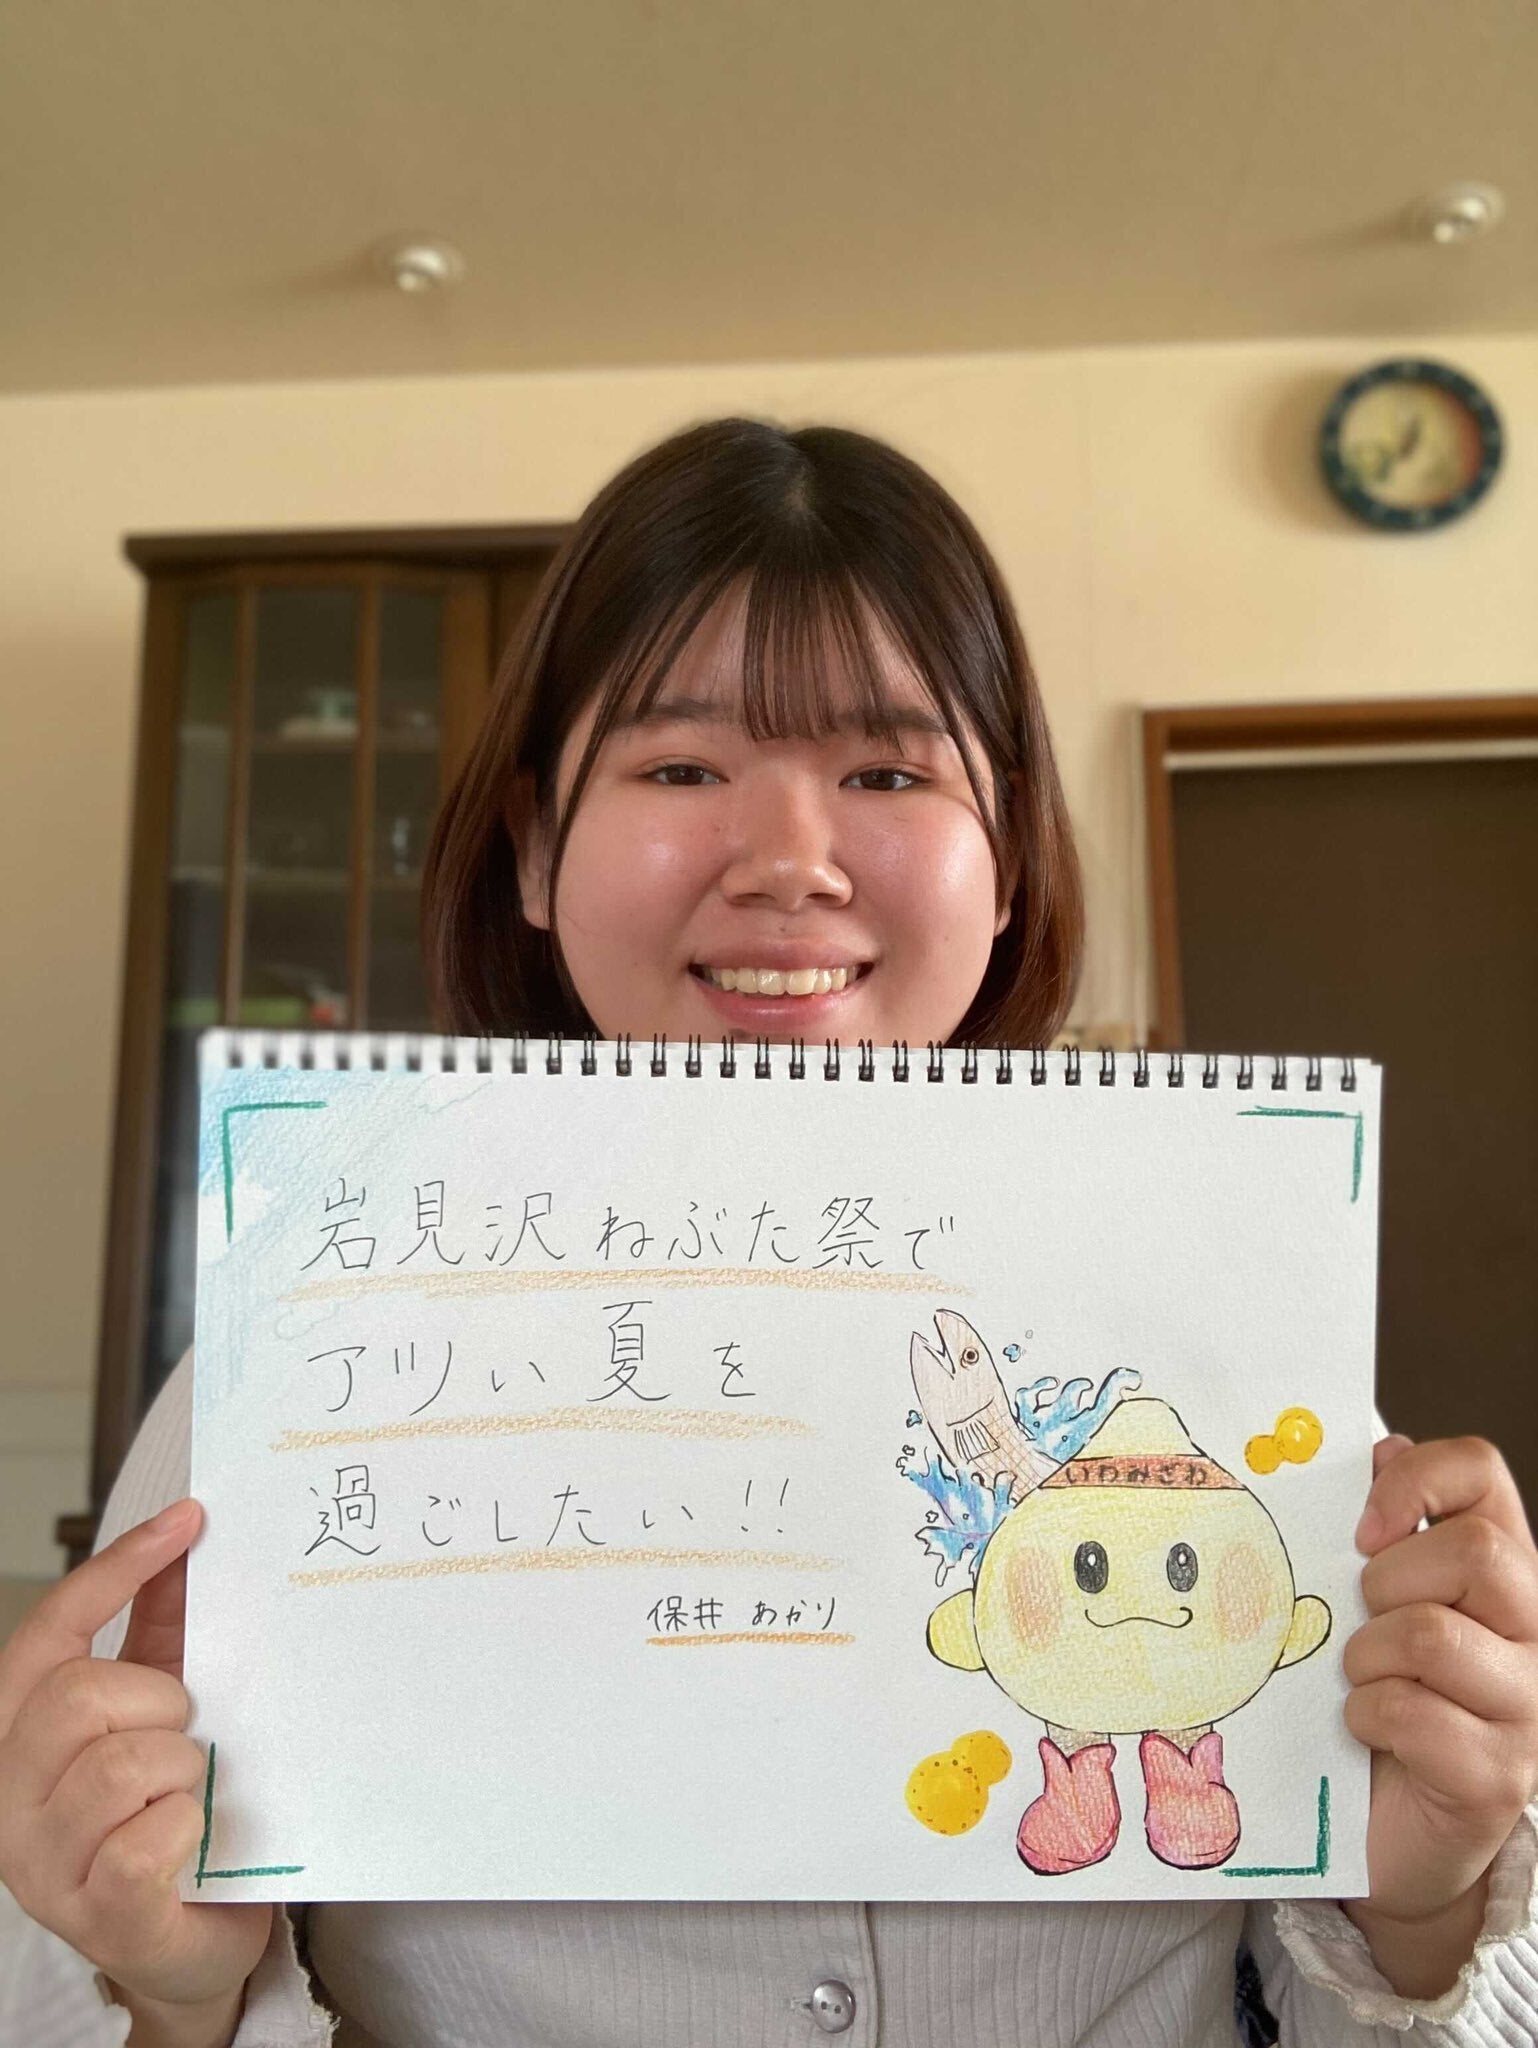 岩見沢ねぶた祭で
アツい夏を
過ごしたい!!
保井 あかり
いわみざわ